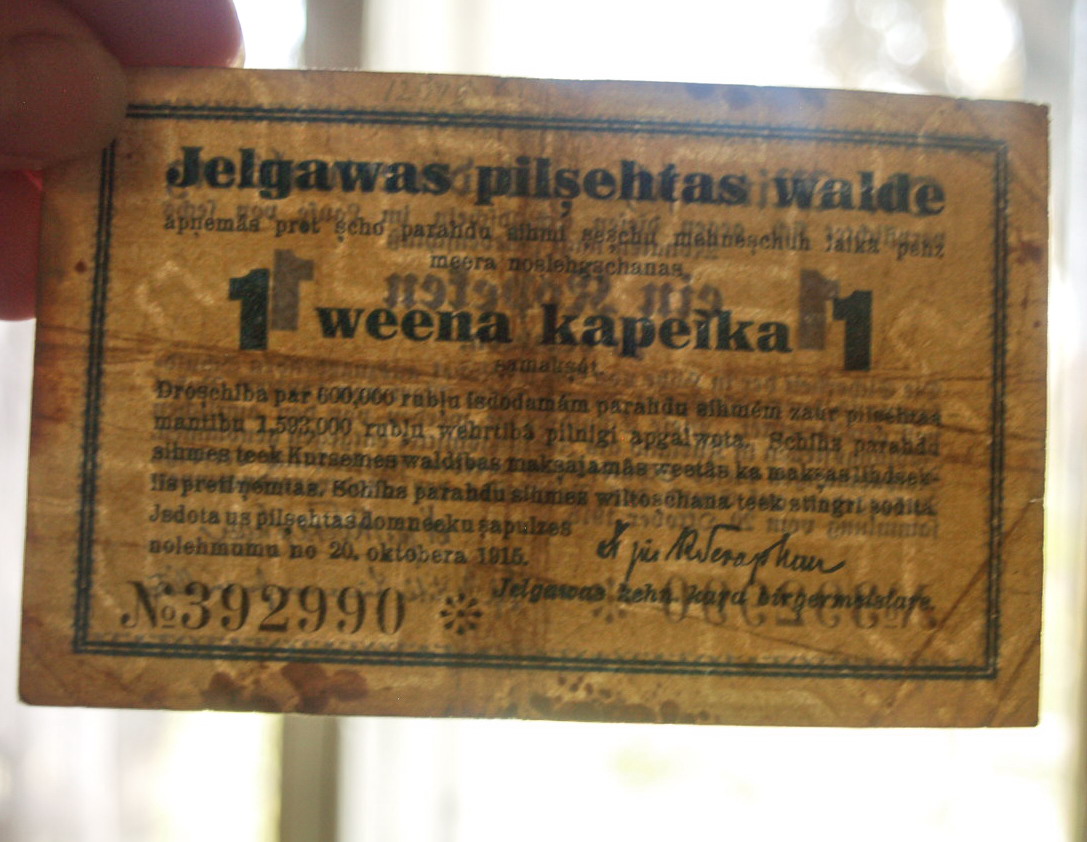 Jelgawas pilşehtas walde
apņemās pret şcho parahdu sihmi şeşchu mehneşchuh laikā pehz
meera noslehgşchanas,
1 weena kapeika 1
samakşāt.
Droşchiba par 600,000 rubļu isdodamām parahdu sihmēm zaur pilşehtas
mantibu 1,593,000 rubļu wehrtibā pilnigi apgalwota. Schihs parahdu
sihmes teek Kursemes waldibas makşajamās weetās kā makşas lihdsek-
lis pretiņemtas. Schihs parahdu sihmes wiltoschana teek stingri sodita.
Jsdota us pilşehtas domneeku şapulzes
nolehmumu no 20. oktobera 1915.
Jelgawas kehn. kara birgermeistars.
№392990